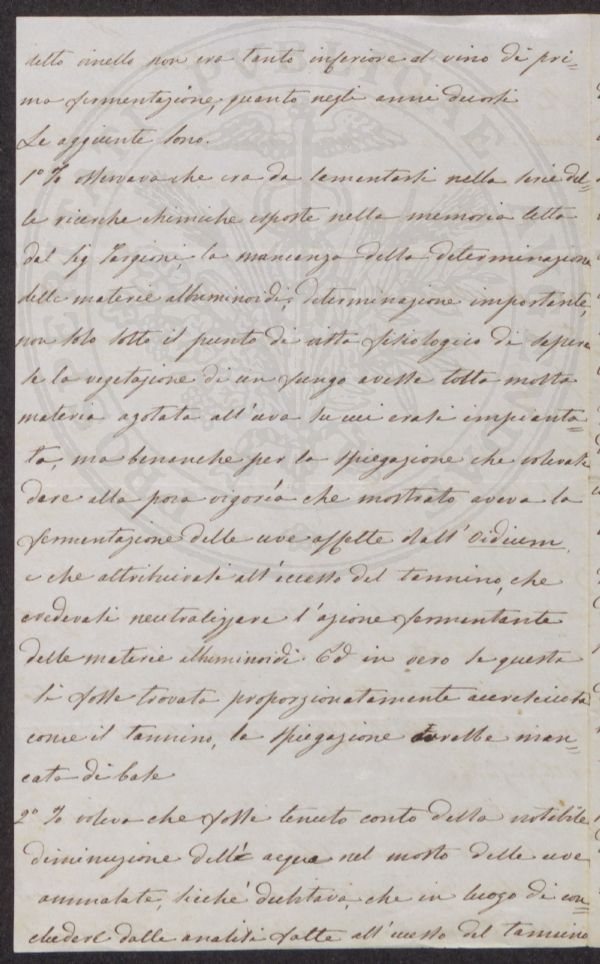 detto vinello non era tanto inferiore al vino di pri=
ma fermentazione, quanto negli anni decorsi
Le aggiunte sono.
1° Io osservava che era da lamentarsi nella serie del=
le ricerche chimiche esposte nella memoria letta
dal Sig Targioni, la mancanza della determinazione
delle materie albuminoidi, determinazione importante,
non solo sotto il punto di vista fisiologico di sapere
se la vegetazione di un fungo avesse tolta molta
materia azotata all'uva su cui erasi impianta=
ta, ma benanche per la spiegazione che volevasi
dare alla poca vigorìa che mostrato aveva la
fermentazione delle uve affette dall'Oidium,
e che attribuivasi all'eccesso del tannino, che
credevasi neutralizzare l'azione fermentante
delle materie albuminoidi Ed in vero se questa
si fosse trovata proporzionatamente accresciuta
come il tannino, la spiegazione sarebbe man=
cata di base
2° Io voleva che fosse tenuto conto della notabile
diminuzione dell' acqua nel mosto delle uve
ammalate, sicché dubitava, che in luogo di con=
cludere dalle analisi fatte all'eccesso del tannino